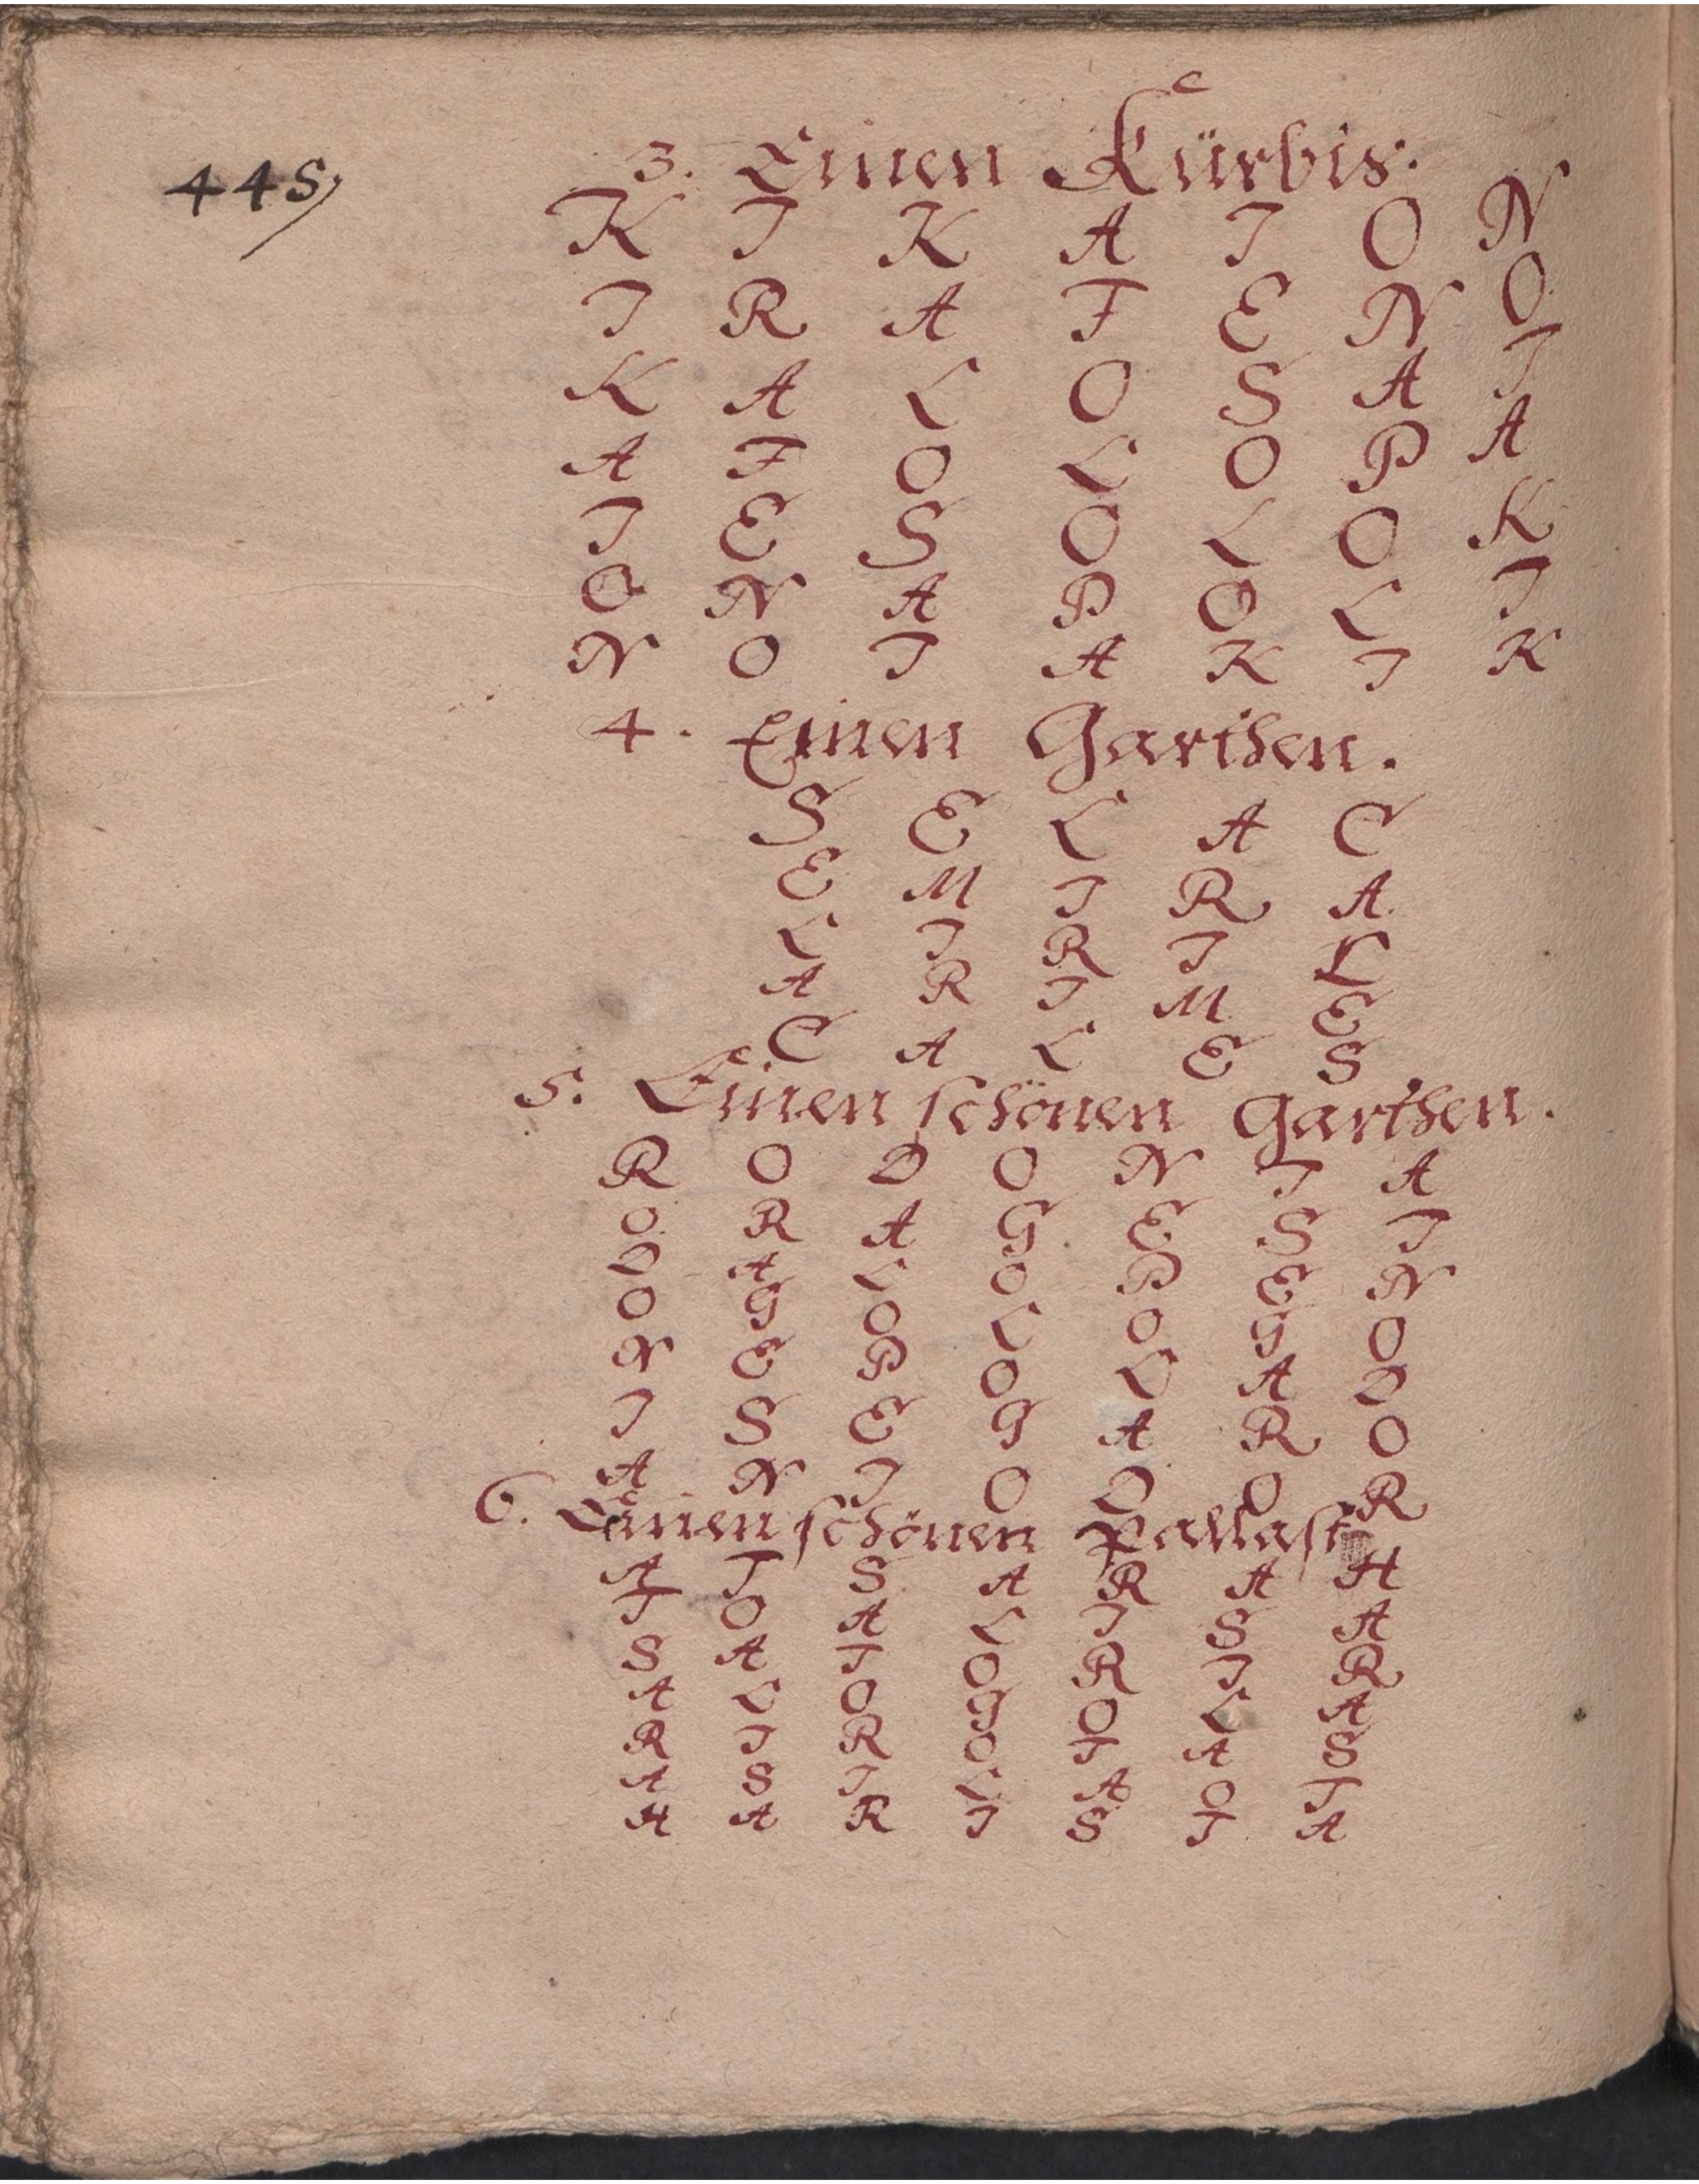 445,
3. Einen Kürbis.
K I K A I O N
I R A F E N O
K A L O S A I
A F O L O P A
I E S O L O K
O N A P O L I
N O I A K I K
4. Einen Garthen.
S E L A C
E M I R A
L I R I L
A R I M E
C A L E S
5. Einen schönen Garthen.
R O D O N I A
O R A G E S I
D A L O P E N
O G O L O G O
N E P O L A D
I S E G A R O
A N I O D O R
6. Einen schönen Pallast
A T S A R A H
T O A L I S A
S A T O R I R
A L O G O L A
R I R O T A S
A S I L A O T
H A R I S T A